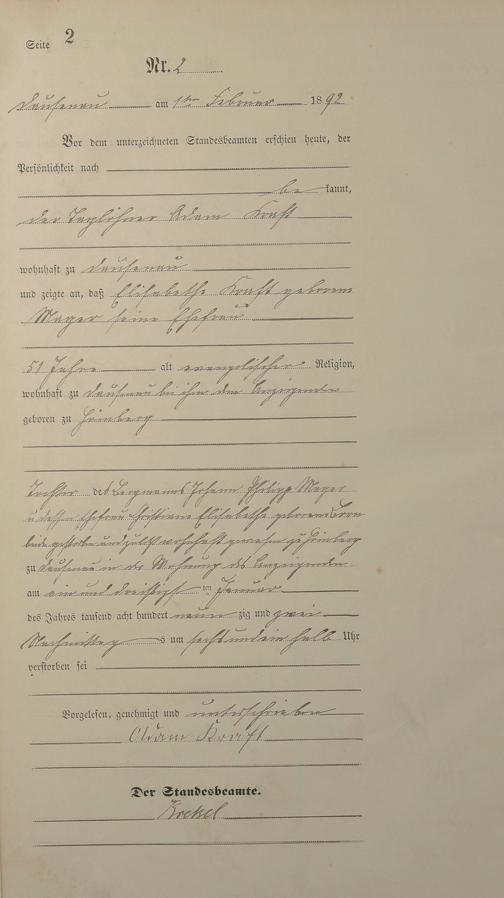 Seite 2
Nr. 2
Dausenau am 1ten Februar 1892
Vor dem unterzeichneten Standesbeamten erschien heute, der
Persönlichkeit nach
be kannt,
der Taglöhner Adam Kraft
wohnhaft zu Dausenau
und zeigte an, daß Elisabethe Kraft geborene
Mayer seine Ehefrau
51 Jahre alt evangelischer Religion,
wohnhaft zu Dausenau bei ihm dem Anzeigenden
geboren zu Hömberg
Tochter des Bergmanns Johann Philipp Mayer
u dessen Ehefrau Christiane Elisabethe geborene
beide gestorben und zuletzt wohnhaft gewesen zu Hömberg
zu Dausenau in der Wohnung des Anzeigenden
am ein und dreißigsten Januar
des Jahres tausend acht hundert neun zig und zwei
Nachmittag s um sechs und ein halb Uhr
verstorben sei
Vorgelesen, genehmigt und unterschrieben
Adam Kraft
Der Standesbeamte.